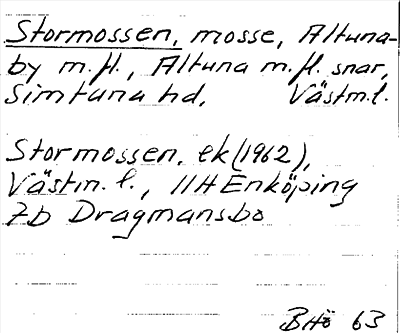 Stormossen, mosse, Altuna-
by m.fl., Altuna m.fl. snar,
Simtuna hd, Västm.l.
Stormossen, ek (1962),
Västm. l., 11H Enköping
7b Dragmansbo
BHö 63